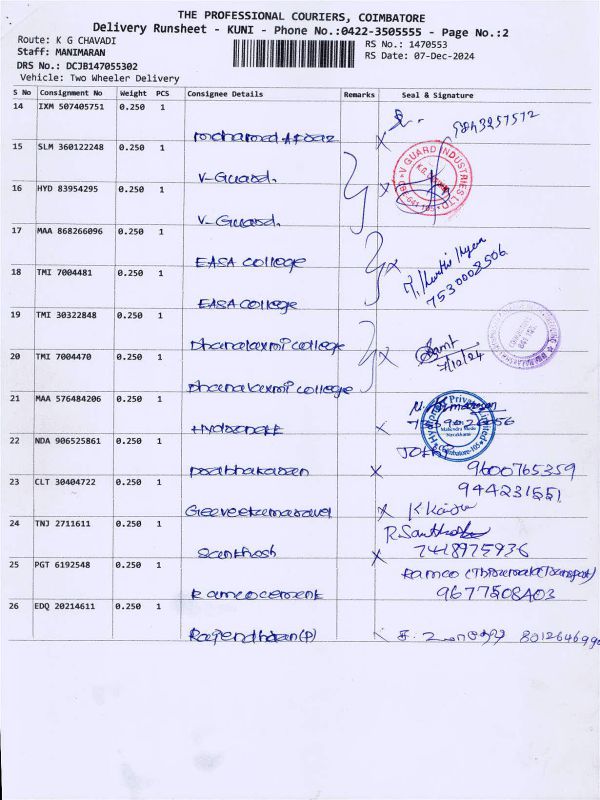 THE PROFESSIONAL COURIERS, COIMBATORE
Delivery Runsheet - KUNI - Phone No.:0422-3505555 - Page No.:2
Route: K G CHAVADI
RS No.: 1470553
Staff: MANIMARAN
RS Date: 07-Dec-2024
DRS No.: DCJB147055302
Vehicle: Two Wheeler Delivery
S No Consignment No Weight PCS Consignee Details Remarks Seal & Signature
14 IXM 507405751 0.250 1
9843257572
mohamed
15 SLM 360122248 0.250 1
V-Guard.
V GUARD INDUSTRIES LTD
16 HYD 83954295 0.250 1
V-Guard.
17 MAA 868266096 0.250 1
EASA college
18 TMI 7004481 0.250 1
7530008506
EASA college
19 TMI 30322848 0.250 1
Dhanalaxmi college
20 TMI 7004470 0.250 1
7/12/24
Dhanalaxmi college
21 MAA 576484206 0.250 1
22 NDA 906525861 0.250 1
Prabhakaran
9600765359
23 CLT 30404722 0.250 1
944231551
24 TNJ 2711611 0.250 1
R.Santhosh
Santhosh
7418975936
25 PGT 6192548 0.250 1
Ramco
Ramco cement
9677508403
26 EDQ 20214611 0.250 1
Rajendhran(P)